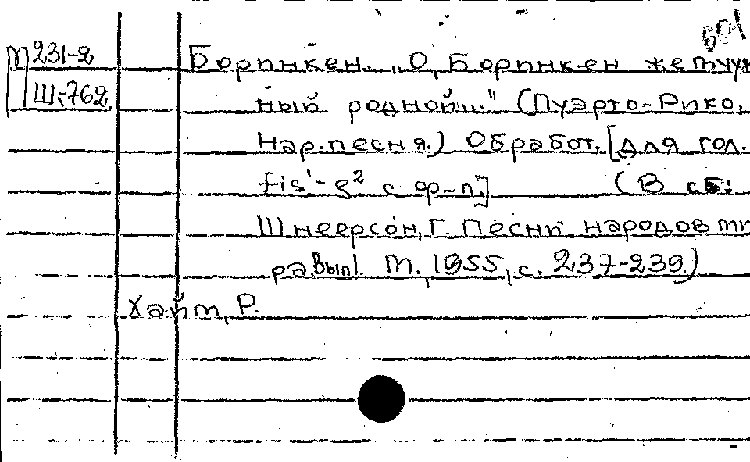 601
М 231-2
Ш-762
Боринкен. „О, Боринкен жемчуж
ный родной..." (Пуэрто-Рико,
Нар. песня.) Обработ. [для гол.
fis'-g² с ф-п.] (В сб.:
Шнеерсон, Г. Песни народов ми
ра вып.1 М., 1955, с. 237-239.)
Хайт, Р.